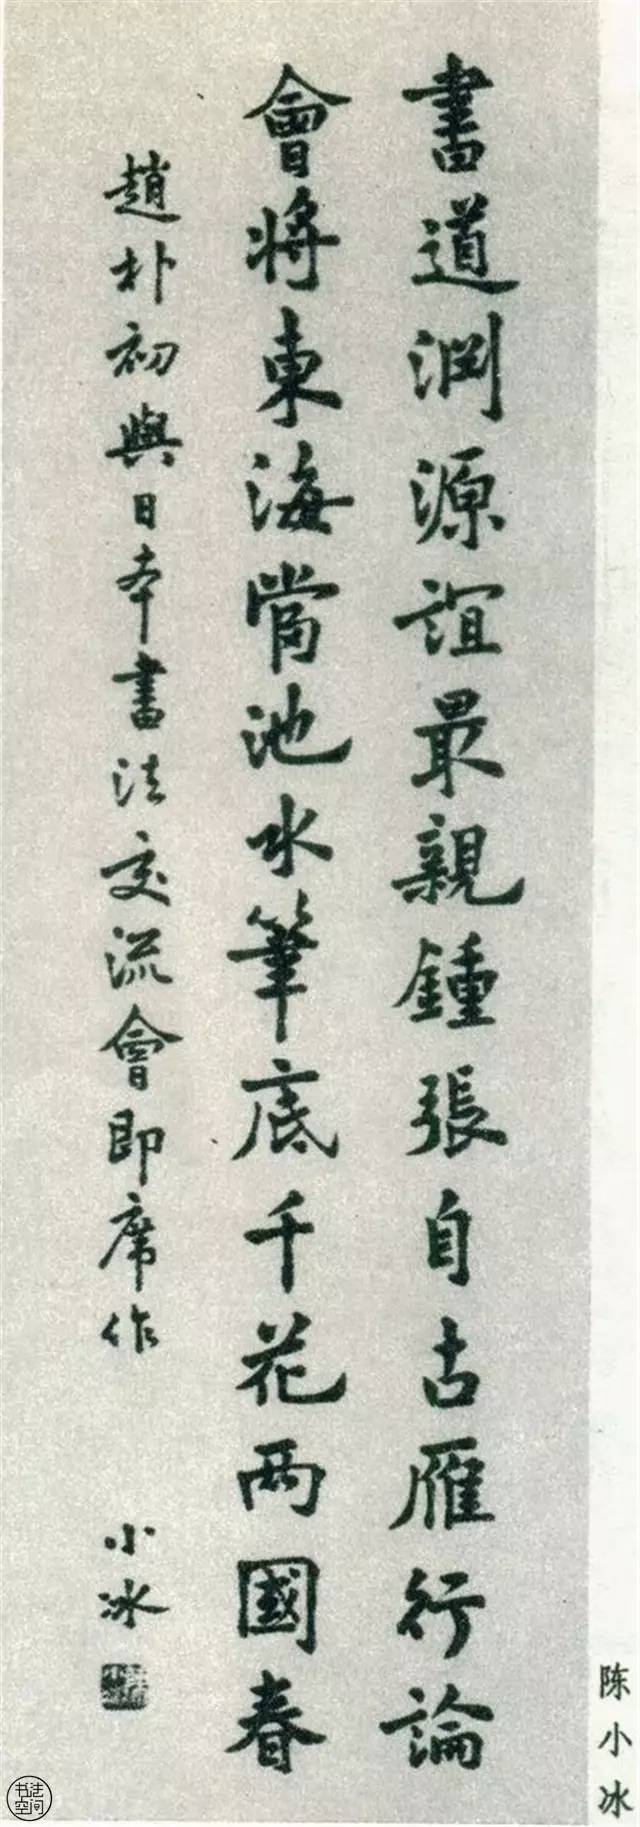 書道渊源誼最親鍾張自古雁行論
會將東海當池水筆底千花两國春
趙朴初與日本書法交流會即席作
小冰
陈小冰
书法空间